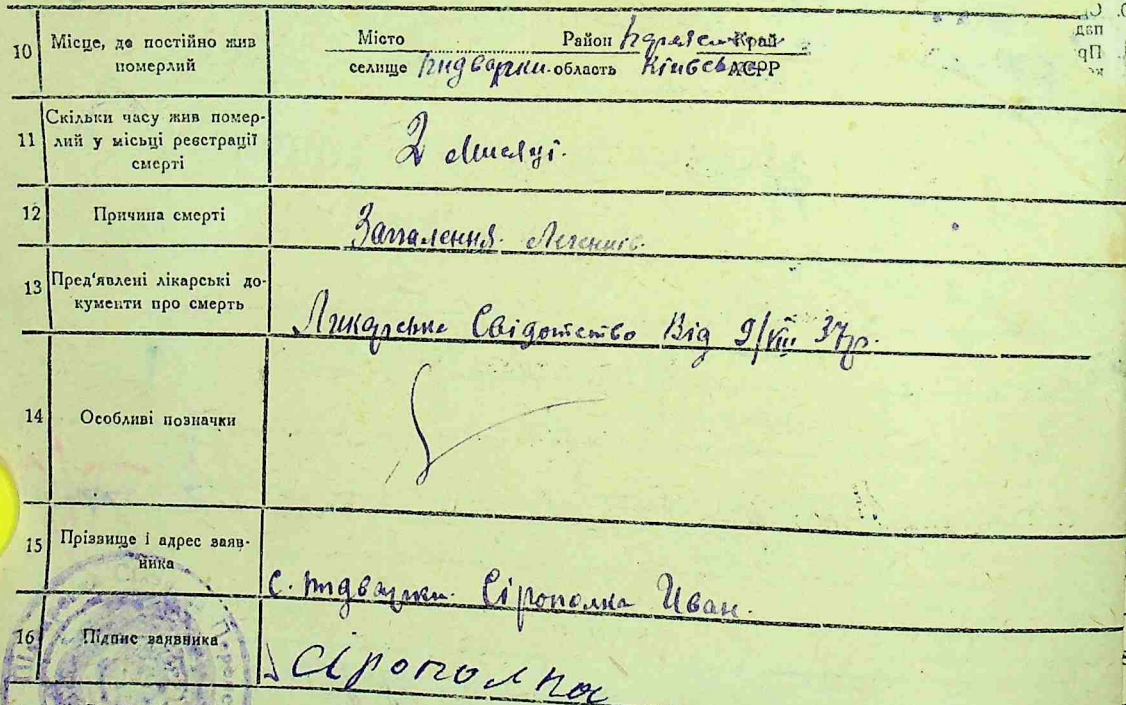 10 Місце, де постійно жив померлий
Місто Район Край
селище Підварки область Київськ АСРР
11 Скільки часу жив помер-
лий у місці реєстрації
смерті
2 Мисяці.
12 Причина смерті
Запалення Легенив.
13 Пред'явлені лікарські до-
кументи про смерть
Ликарське Свідотство Від 9/VIII 37р.
14 Особливі позначки
15 Прізвище і адрес заяв-
ника
с. Підварки Сірополка Иван.
16 Підпис заявника
Сірополка